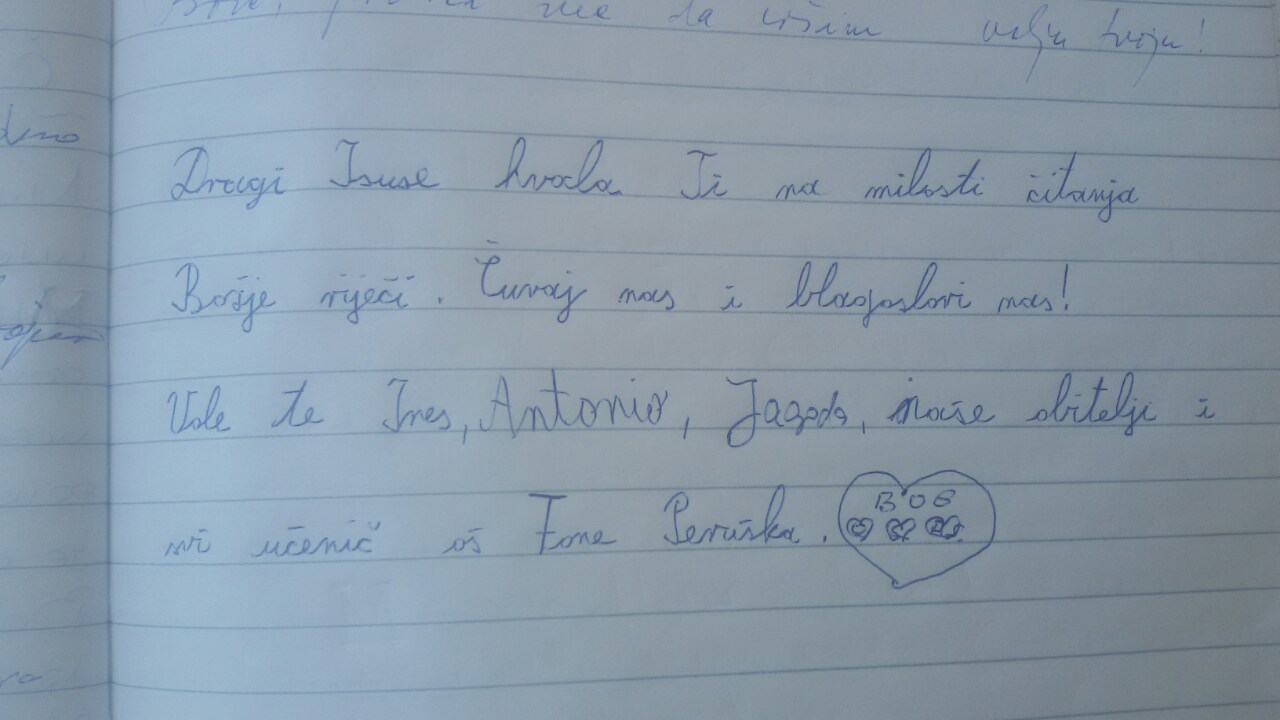 me da vršim volju tvoju!
Dragi Isuse hvala Ti na milosti čitanja
Božje riječi. Čuvaj nas i blagoslovi nas!
Vole te Ines, Antonio, Jagoda, naše obitelji i
mi učenič oš Fone Peruška.
BOG